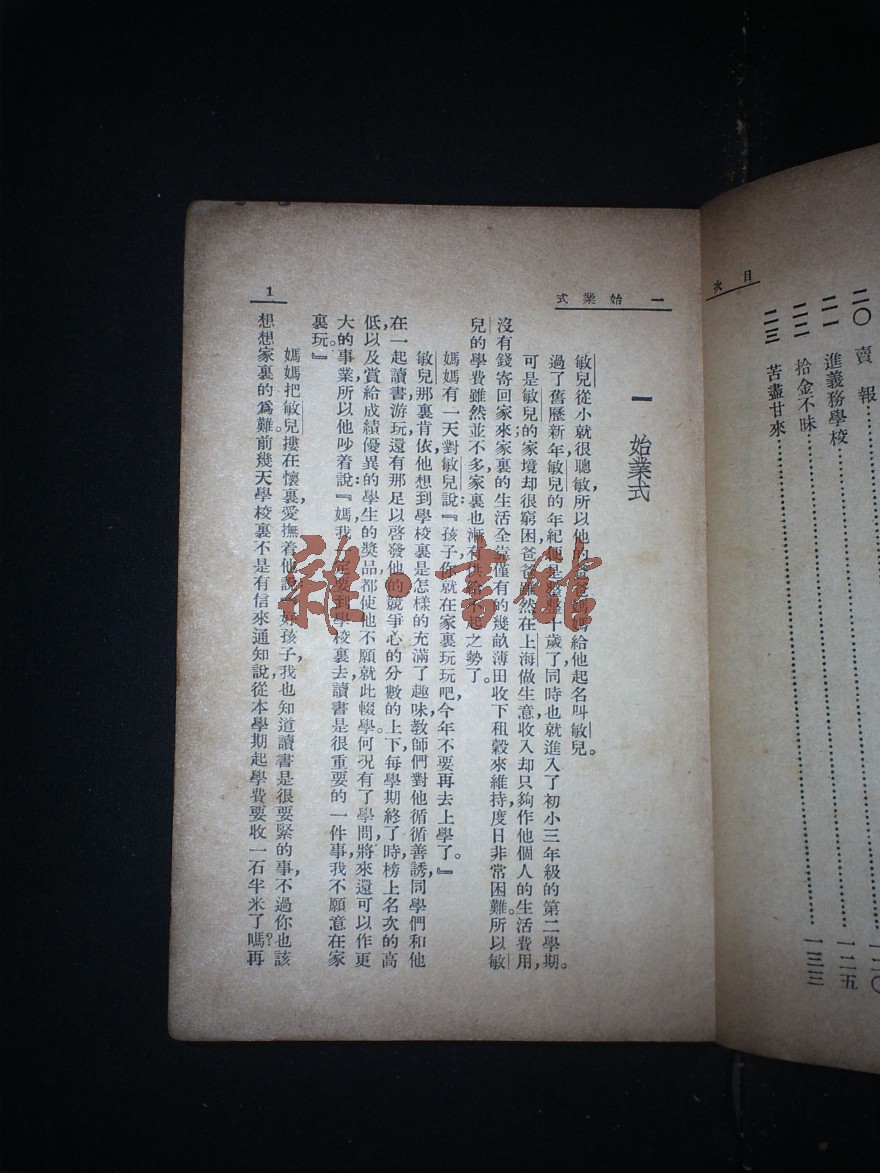 目次
二〇 賣報……一二〇
二一 進義務學校……一二五
二二 拾金不昧……一三三
二三 苦盡甘來……
一 始業式
一 始業式
敏兒從小就很聰敏,所以他的爸爸媽媽給他起名叫敏兒。
過了舊曆新年,敏兒的年紀便是整整十歲了,同時也就進入了初小三年級的第二學期。
可是敏兒的家境却很窮困,爸爸雖然在上海做生意,收入却只夠作他個人的生活費用,
沒有錢寄回家來;家裏的生活全靠僅有的幾畝薄田收下租穀來維持,度日非常困難。所以敏
兒的學費雖然並不多,家裏也漸有供給不起之勢了。
媽媽有一天對敏兒說:『孩子,你就在家裏玩玩吧,今年不要再去上學了。』
敏兒那裏肯依,他想到學校裏是怎樣的充滿了趣味,教師們對他循循善誘,同學們和他
在一起讀書游玩,還有那足以啓發他的競爭心的分數的上下,每學期終了時,榜上名次的高
低,以及賞給成績優異的學生的獎品,都使他不願就此輟學。何況有了學問,將來還可以作更
大的事業,所以他吵着說:『媽,我一定要到學校裏去,讀書是很重要的一件事,我不願意在家
裏玩。』
媽媽把敏兒摟在懷裏,愛撫着他說:『好孩子,我也知道讀書是很要緊的事,不過你也該
想想家裏的爲難。前幾天學校裏不是有信來通知說,從本學期起學費要收一石半米了嗎?再
1
雜·書館